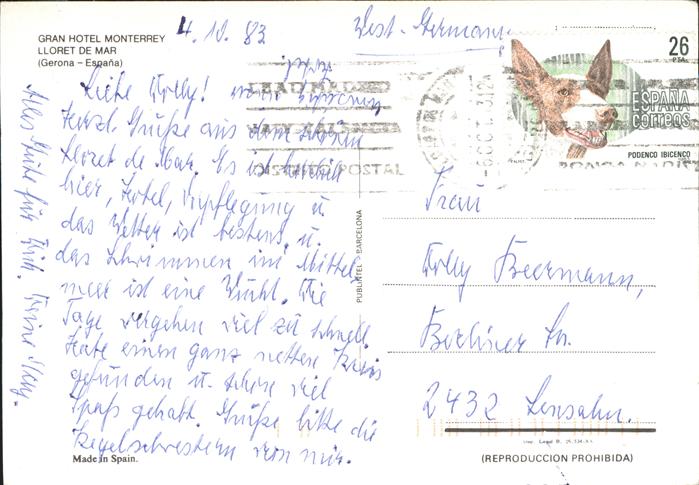 GRAN HOTEL MONTERREY
LLORET DE MAR
(Gerona – España)
4.10.83
West-Germany
26
PTA
ESPAÑA
correos
PODENCO IBICENCO
DISTRITO POSTAL
LiebeOlly!
Herzl. Grüße aus dem schönen
Lloret de Mar. Es ist herrlich
hier, Hotel, Verpflegung u.
das Wetter ist bestens u.
das Schwimmen im Mittel-
meer ist eine Wucht. Die
Tage vergehen viel zu schnell.
Habe einen ganz netten Kreis
gefunden u. schon viel
Spaß gehabt. Grüße bitte die
Kegelschwestern von mir.
Alles Gute für Dich. Deine
PUBLINTEL - BARCELONA
Frau
Olly Beermann,
Berliner Str.
2432 Lensahn.
Made in Spain.
(REPRODUCCION PROHIBIDA)